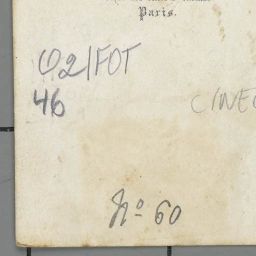 Paris.
62/FOT
46
CINE
Nº 60